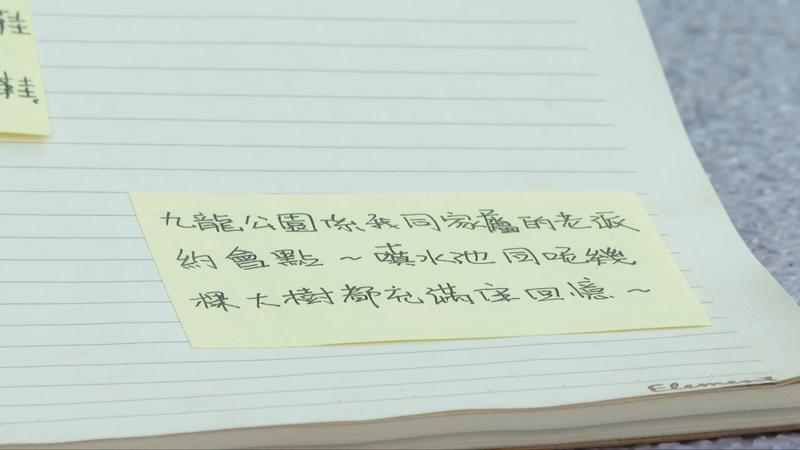 鞋
鞋
九龍公園係我同家的老派
約會點～噴水池同呢幾
棵大樹都充滿回憶～
Element